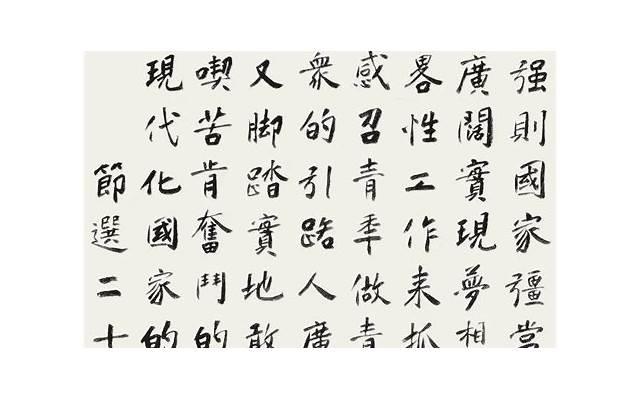 强則國家彊當
廣闊實現夢想
畧性工作来抓
感召青年做青
衆的引路人廣
又脚踏實地敢
喫苦肯奮鬥的
現代化國家的
節選二十